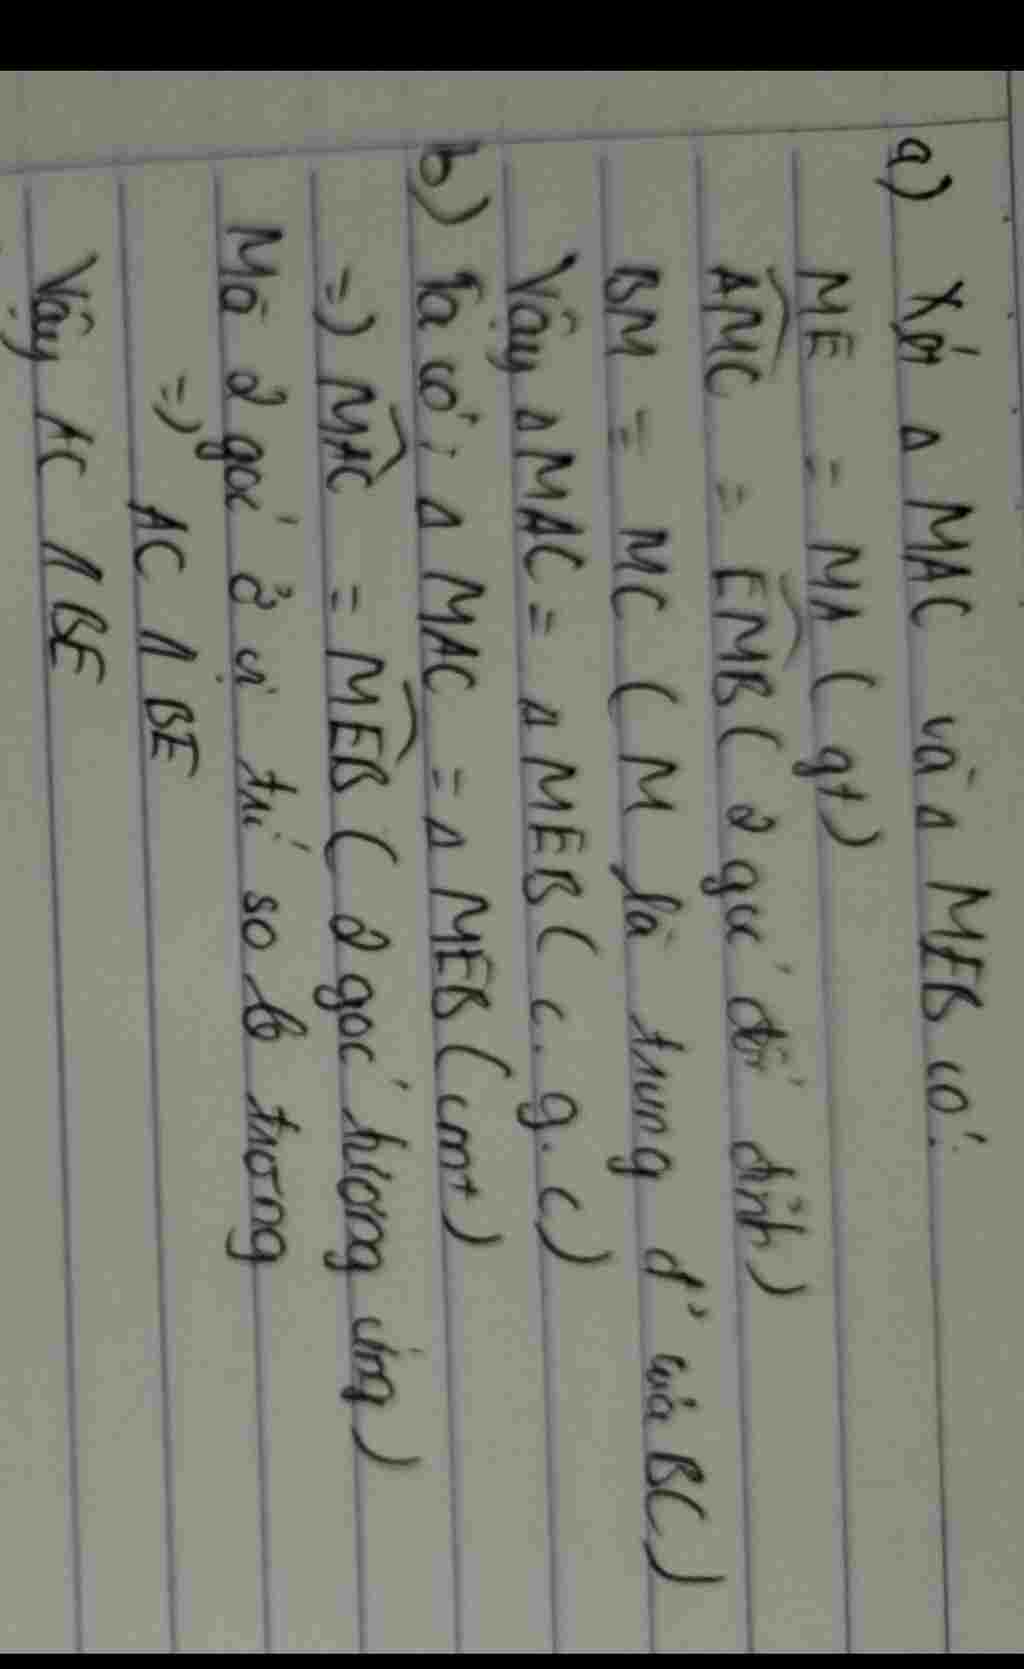 a) Xét Δ MAC và Δ MEB có:
ME = MA ( gt )
AMC = EMB ( 2 góc đối đỉnh )
BM = MC ( M là trung đ' của BC )
Vậy Δ MAC = Δ MEB ( c. g. c )
b) Ta có: Δ MAC = Δ MEB ( cmt )
=) MAC = MEB ( 2 góc tương ứng )
Mà 2 góc ở vị trí so le trong
=) AC // BE
Vậy AC // BE